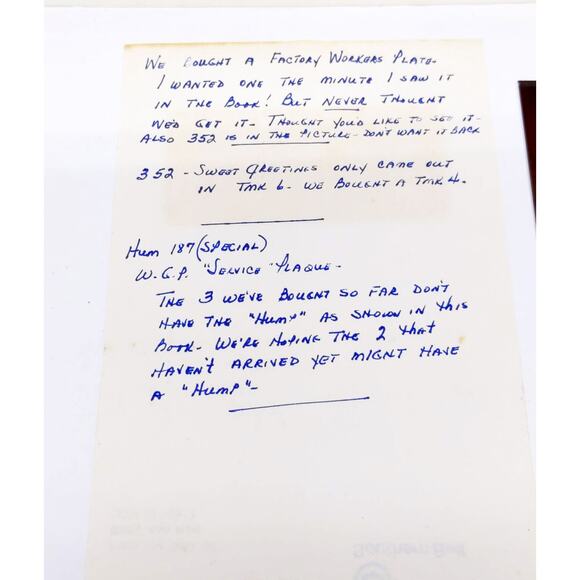 We Bought A Factory Workers Plate.
I wanted one the minute I saw it
in the Book! But never thought
we'd get it - Thought you'd like to see it -
Also 352 is in the picture - Don't want it back
352 - Sweet Greetings only came out
in TMK 6. We Bought A TMK 4.
Hum 187 (Special)
W.G.P. "Service" Plaque -
The 3 we've Bought so far don't
have the "Hump" as shown in this
Book - We're hoping the 2 that
haven't arrived yet might have
a "Hump" -
Southern Bell